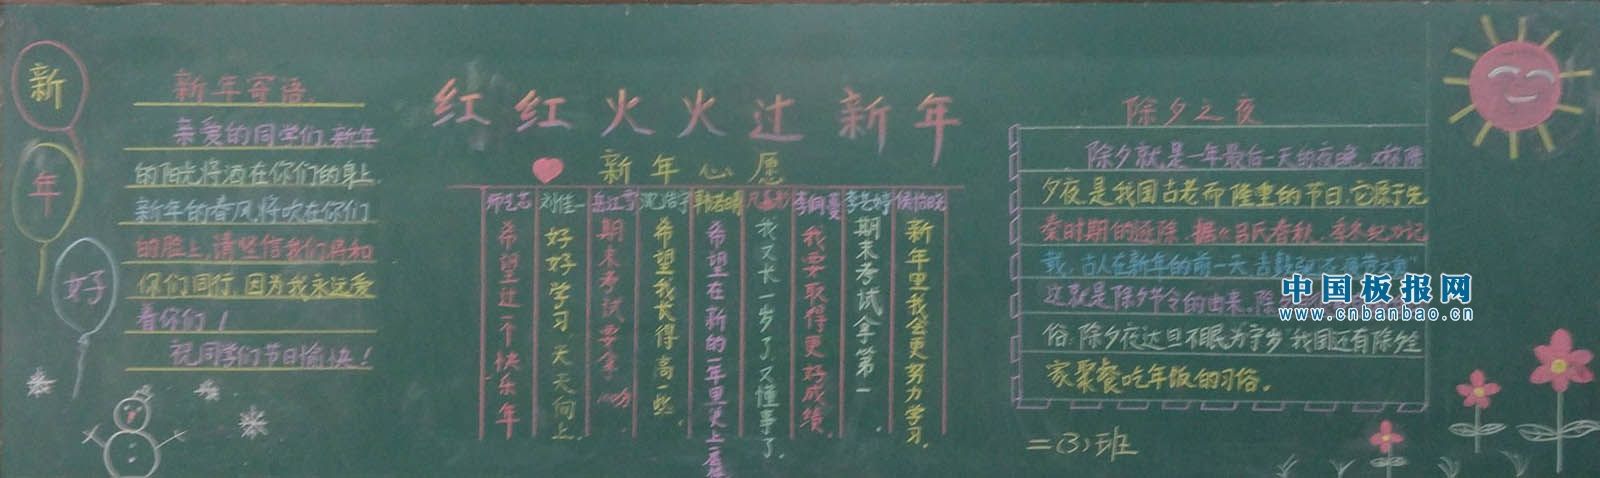 新
年
好
新年寄语
亲爱的同学们,新年
的阳光将洒在你们的身上,
新年的春风将吹在你们
的脸上,请坚信我们将和
你们同行,因为我永远爱
着你们!
祝同学们节日愉快!
红红火火过新年
新年心愿
希望过一个快乐年
刘佳一
好好学习,天天向上
期末考试要拿100分
希望我长得高一些
希望在新的一年里更上一层
我又长一岁了,又懂事了
我要取得更好成绩
期末考试拿第一
新年里我会更努力学习
除夕之夜
除夕就是一年最后一天的夜晚
夕夜,是我国古老而隆重的节日,它原于先
秦时期的逐除,据《吕氏春秋·季冬纪》记
载,古人在新年的前一天
这就是除夕节令的由来,除
俗,除夕夜达旦不眠为守岁,我国还有除夕全
家聚餐吃年饭的习俗。
二(3)班
中国板报网
www.cnbanbao.cn